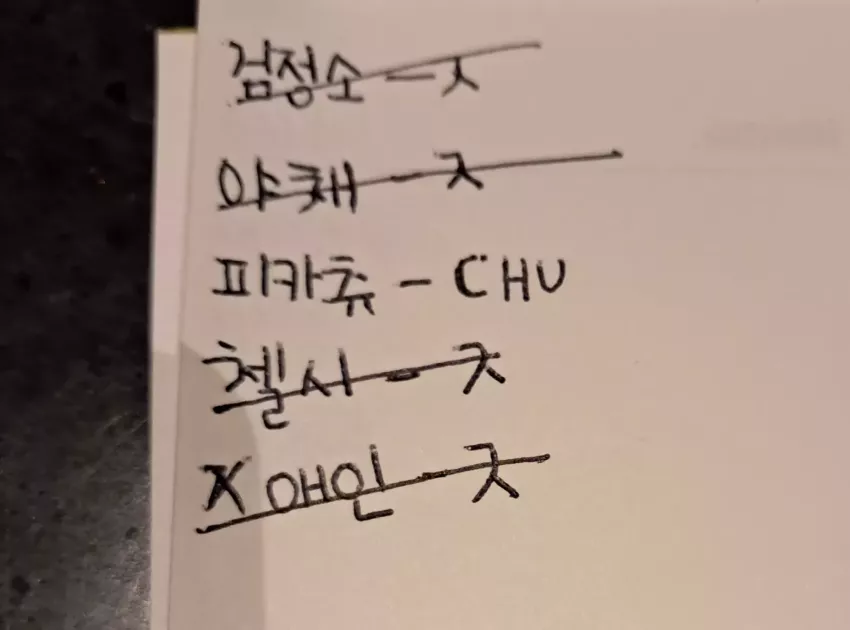 검정소 - ㅈ
야채 - ㅈ
피카츄 - CHU
첼시 - ㅈ
X 애인 - ㅈ